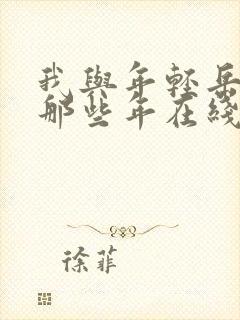 我與年輕岳
那些年在綫
徐菲